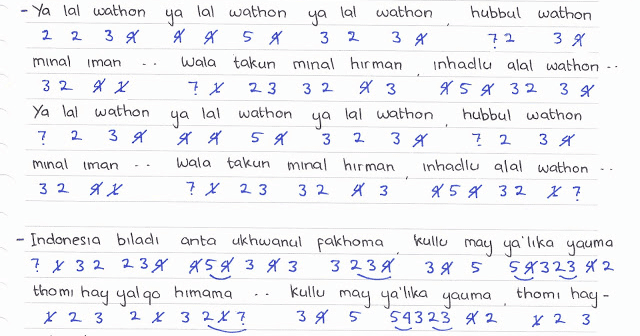 - Ya lal wathon ya lal wathon ya lal wathon , hubbul wathon
2 2 3 4̸ 4̸ 4̸ 5 4̸ 3 2 3 4̸ 7̣ 2 3 4̸
minal iman .. wala takun minal hirman , inhadlu alal wathon ..
3 2 4̸ 1̸ 7̣ 1̸ 2 3 3 2 4̸ 3 4̸ 5 4̸ 3 2 3 4̸
Ya lal wathon ya lal wathon ya lal wathon , hubbul wathon
7̣ 2 3 4̸ 4̸ 4̸ 5 4̸ 3 2 3 4̸ 7̣ 2 3 4̸
minal iman .. wala takun minal hirman , inhadlu alal wathon ..
3 2 4̸ 1̸ 7̣ 1̸ 2 3 3 2 4̸ 3 4̸ 5 4̸ 3 2 1̸ 7̣
- Indonesia biladi anta ukhwanul fakhoma , kullu may ya'lika yauma
7̣ 1̸ 3 2 2 3 4̸ 4̸ 5 4̸ 3 4̸ 3 3 2 3 4̸ 3 4̸ 5 5 4̸ 3 2 3 4̸ 2
thomi hay yalqo himama .. kullu may ya'lika yauma , thomi hay -
1̸ 2 3 2 1̸ 3 2 1̸ 7̣ 3 4̸ 5 5 4̸ 3 2 3 4̸ 2 1̸ 2 3